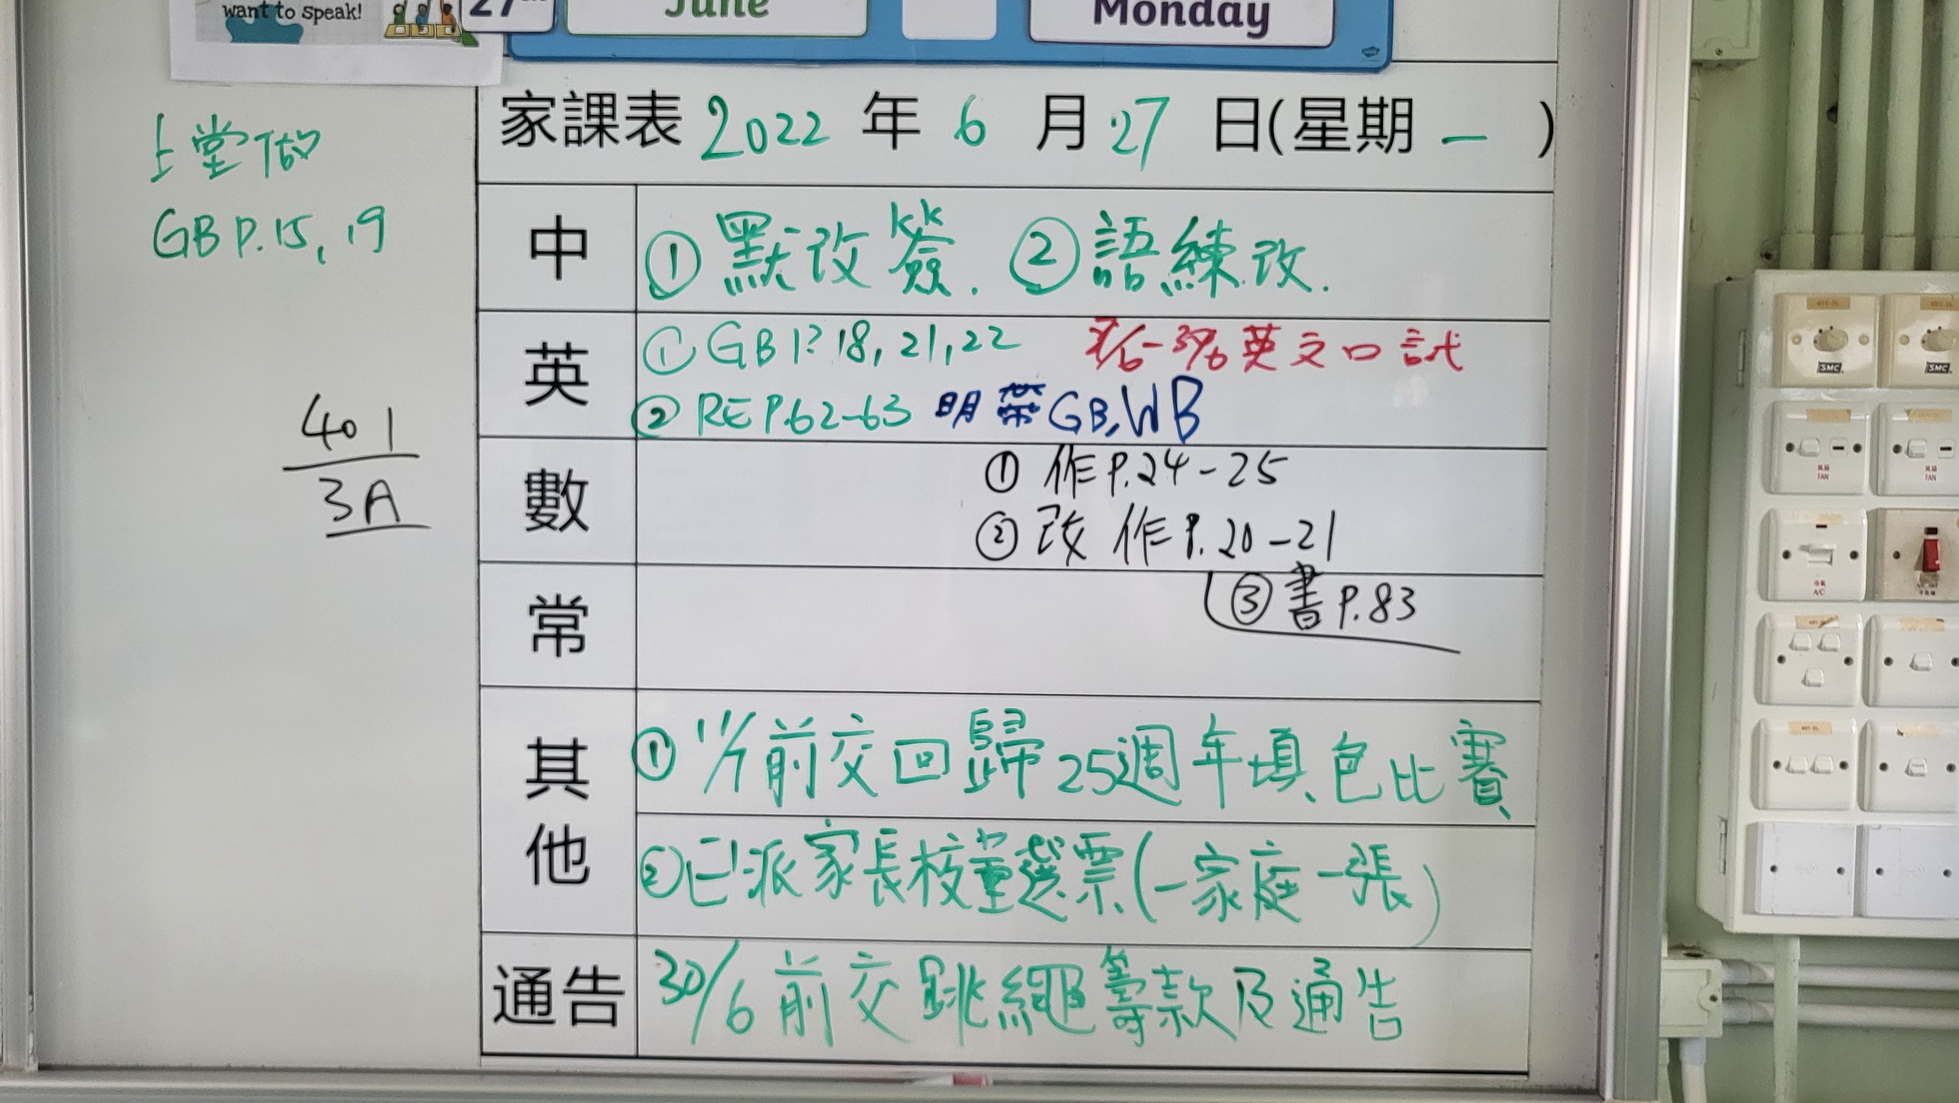 want to speak!
27th
June
Monday
家課表 2022 年 6 月 27 日(星期 一 )
上堂做
GB P.15, 19
401
3A
中
① 默改簽. ② 語練改.
英
① GB P. 18, 21, 22
英文口試
② RE P.62-63 明帶 GB, WB
數
① 作 P.24-25
② 改 作 P.20-21
常
③ 書 P.83
其他
① 11/7 前交回歸25週年填色比賽
② 已派家長校董選票(一家庭一張)
通告
30/6 前交跳繩籌款及通告